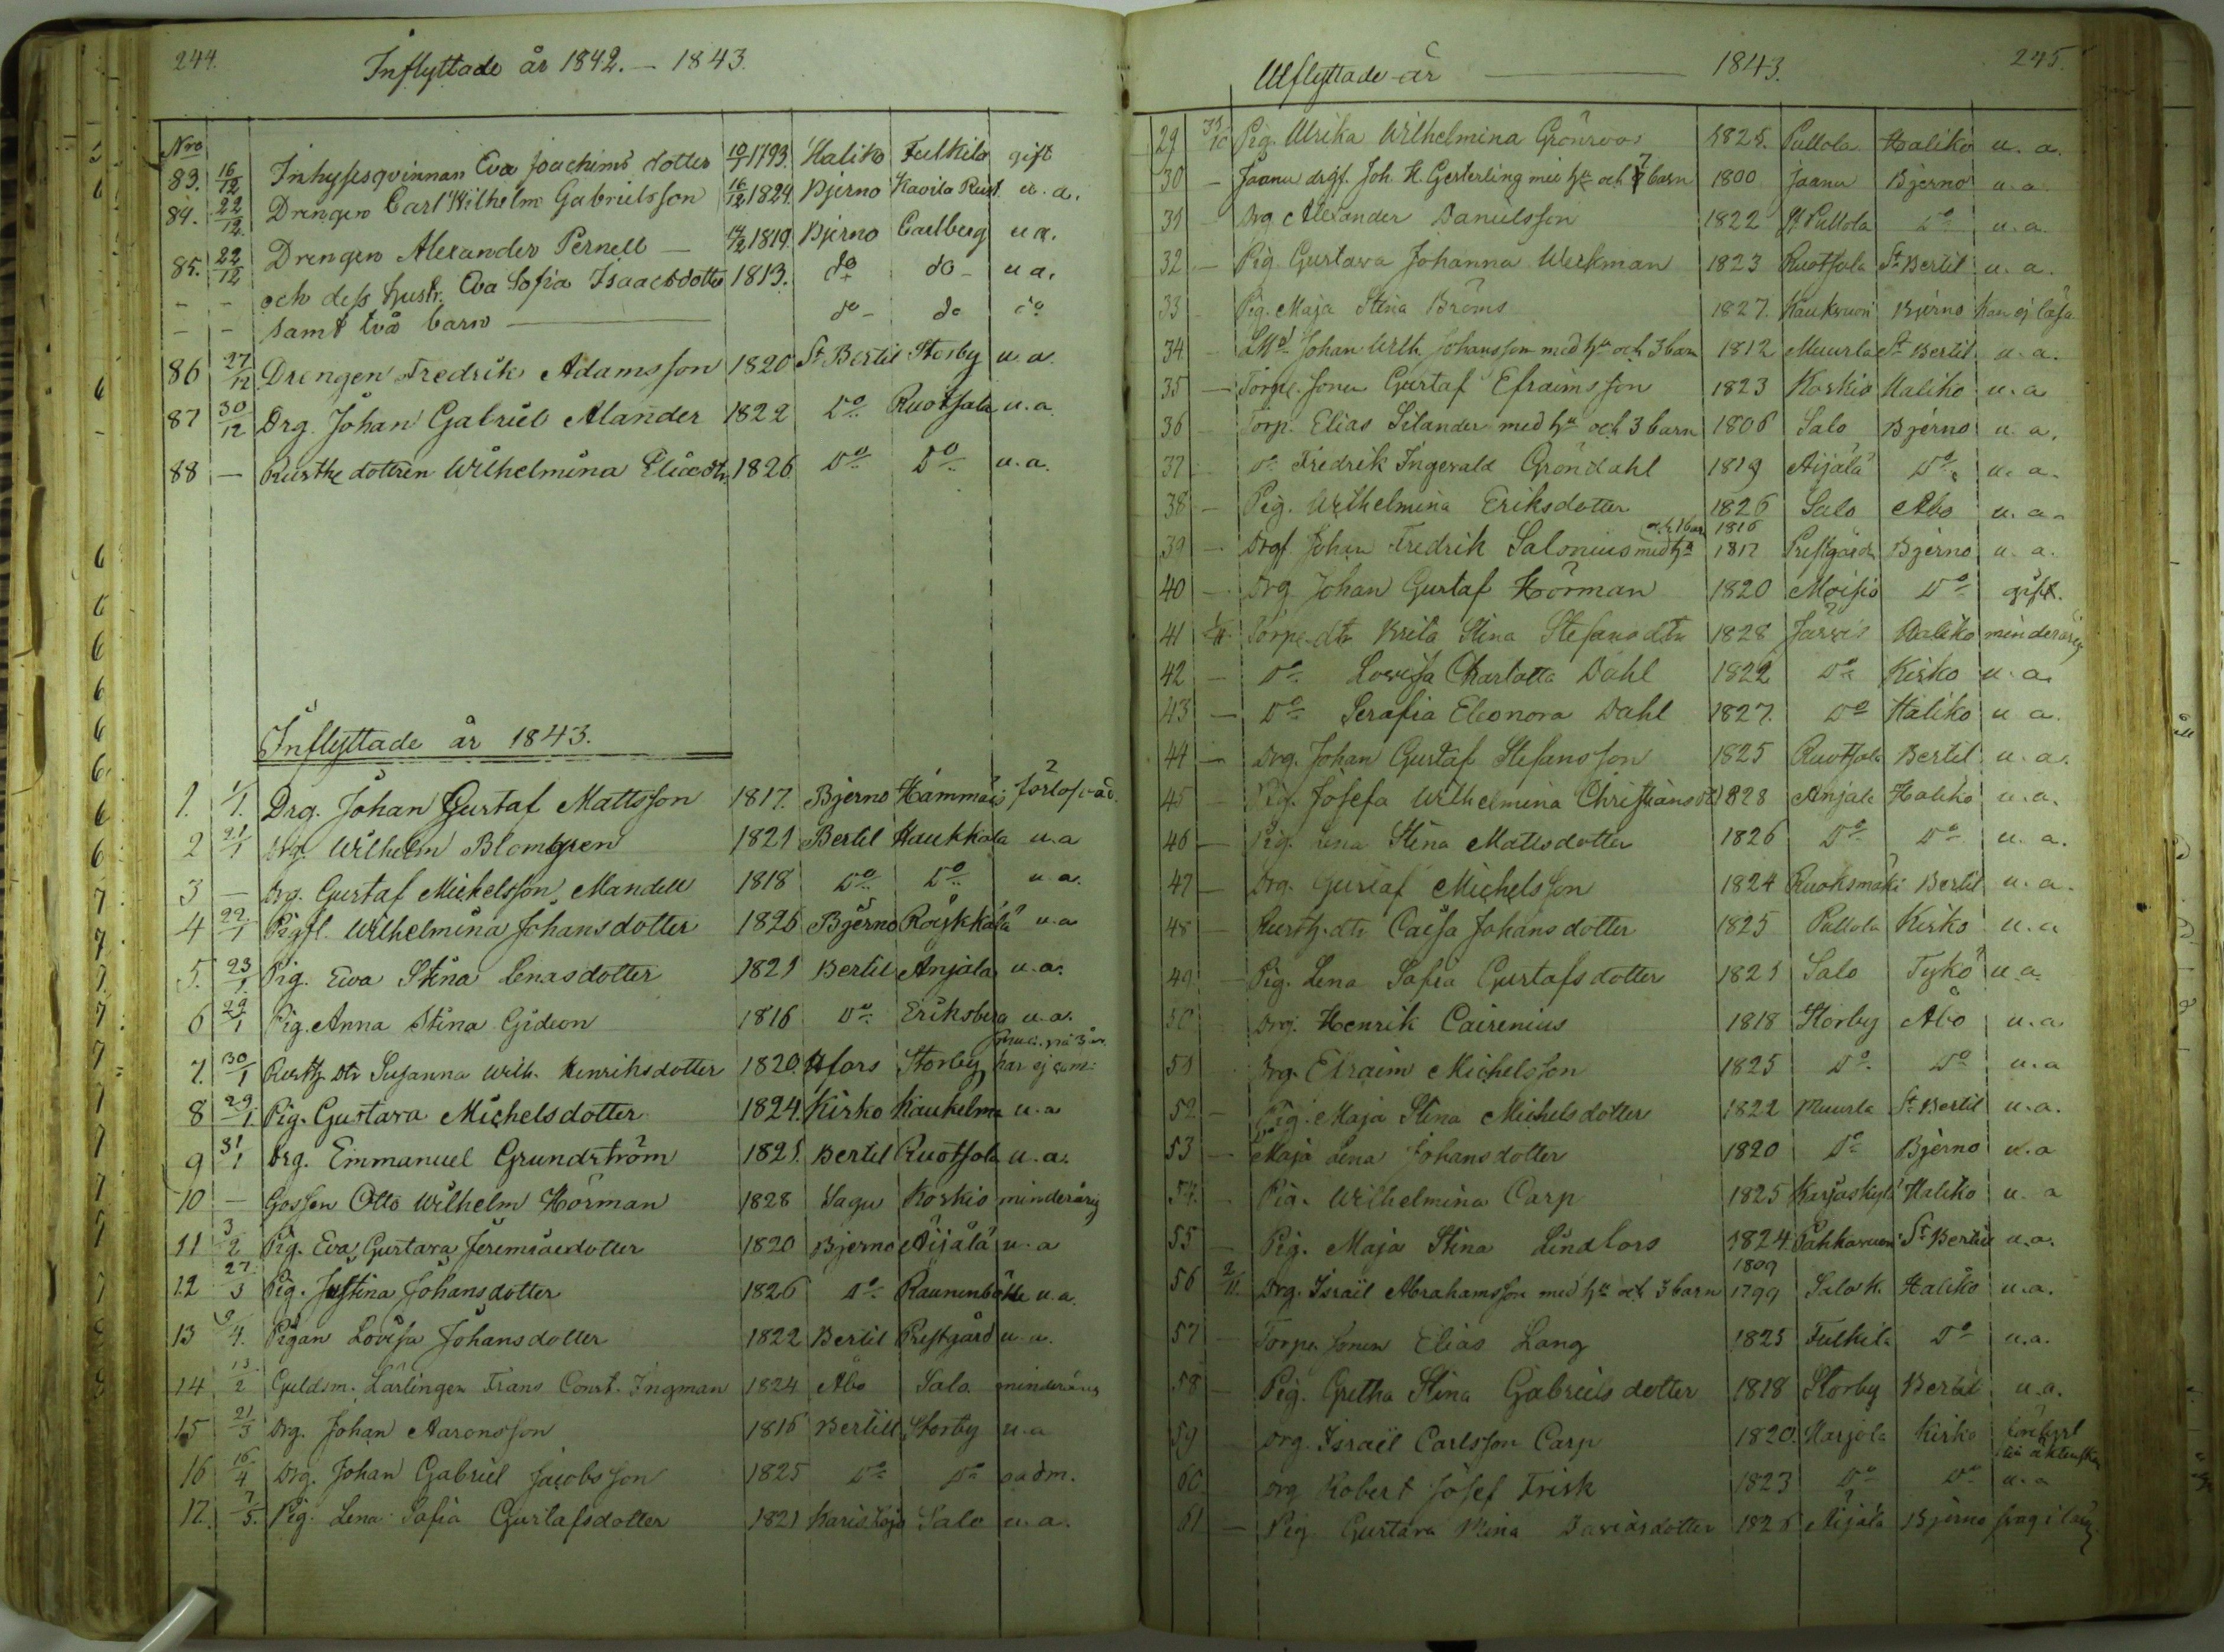 244.
Inflyttade år 1842. — 1843.
Nro
83. 16/12 Inhyses qvinnan Eva Joachims dotter 10/7 1793. Haliko Fulkila gift
84. 22/12 Drengen Carl Wilhelm Gabrielsson 16/12 1824. Bjerno Kavila Rust. u. a.
85. 22/12 Drengen Alexander Pernell — 1819. Bjerno Carlberg u a.
- - och dess hustr. Eva Sofia Isaacsdotter 1813. do do - u a.
- - samt två barn — do - do do
86 27/12 Drengen Fredrik Adamsson 1820 St Bertil Storby u. a.
87 30/12 Drg. Johan Gabriel Alander 1822 Do Ruotsala u. a.
88 — Rusth dottren Wilhelmina Eliædtr. 1826 Do Do u. a.
Inflyttade år 1843.
1. 1/1. Drg. Johan Gustaf Mattsson 1817. Bjerno Hämmäis förlofvad.
2 21/1 Drg. Wilhelm Blomgren 1821 Bertil Haukkala u. a
3 — Drg. Gustaf Michelsson Mandell 1818 Do Do u. a.
4 22/1 Pigfl. Wilhelmina Johansdotter 1826 Bjerno Röiskkälä u. a
5. 23/1. Pig. Ewa Stina Lenasdotter 1821 Bertil Anjala u. a.
6 29/1 Pig. Anna Stina Gideon 1816 Do Eriksberg u. a.
7. 30/1 Rusth. Dtr Susanna Wilh. Henriksdotter 1820. Hfors Storby har ej com.
8 29/1. Pig. Gustava Michelsdotter 1824. Kisko Kaukelma u. a
9 31/1 Drg. Emmanuel Grundström 1821. Bertil Ruotsala u. a.
10 — Gossen Otto Wilhelm Hörman 1828 Sagu Koskis minderårig
11 3/2 Pig. Eva Gustava Jeremiædotter 1820 Bjerno Äijälä u. a
12 27/3 Pig. Justina Johansdotter 1826 Do u. a.
13 9/4. Pigan Lovisa Johansdotter 1822 Bertil Prestgård u. a.
14 13/2 Guldsm. Lärlingen Frans Const. Ingman 1824 Åbo Salo minderårig
15 21/3 Drg. Johan Aaronsson 1816 Bertill Storby u. a
16 16/4 Drg. Johan Gabriel Jacobsson 1825 Do Do
17. 7/5. Pig. Lena Sofia Gustafsdotter 1821 Karislojo Salo u. a.
245.
Utflyttade år — 1843.
29 31/10 Pig. Ulrika Wilhelmina Grönroos 1825. Pullola Haliko u. a.
30 — Jaanu drgf. Joh. H. Gesterling med hu och 7 barn 1800 Jaanu Bjerno u. a
31 — Drg Alexander Danielsson 1822 Pullola Do u. a.
32 — Pig. Gustava Johanna Weckman 1823 Ruotsala St Bertil u. a.
33 Pig. Maja Stina Bröms 1827. Kaukvuori Bjerno kan ej läsa
34 — Johan Wilh. Johansson med hu och 3 barn 1812 Muurla St Bertil u. a.
35 — Torpe. Sonen Gustaf Efraimsson 1823 Koskis Haliko u. a
36 — Torp. Elias Silander med hu och 3 barn 1806 Salo Bjerno u. a.
37 Do Fredrik Ingevald Gröndahl 1819 Äijälä Do u. a.
38 — Pig. Wilhelmina Eriksdotter 1826 Salo Åbo u. a.
39 — Drgf. Johan Fredrik Salonius med hu och 1 barn 1816 1817 Prestgården Bjerno u. a.
40 — Drg Johan Gustaf Hörman 1820 Moisio Do gift.
41 1/11 Torpe. dtr Brita Stina Stefansdtr 1828 Järvis Haliko minderårig
42 — Do Lovisa Charlotta Dahl 1822 Do Kisko u. a.
43 — Do Serafia Eleonora Dahl 1827. Do Haliko u. a.
44 — Drg. Johan Gustaf Stefansson 1825 Ruotsala Bertil u. a.
45 Pig. Josefa Wilhelmina Christiansdtr 1828 Anjala Haliko u. a.
46 — Pig. Lena Stina Mattsdotter 1826 Do Do u. a.
47 — Drg. Gustaf Michelsson 1824 Ruoksmäki Bertil u. a.
48 — Rusth. dtr Caisa Johansdotter 1825 Pullola Kisko u. a
49 — Pig. Lena Sofia Gustafsdotter 1821 Salo Tykö u a
50 — Drg. Henrik Cairenius 1818 Storby Åbo u. a
51 Drg. Efraim Michelsson 1825 Do Do u. a
52 — Pig. Maja Stina Michelsdotter 1822 Muurla St Bertil u. a.
53 — Maja Lena Johansdotter 1820 Do Bjerno u. a
54. Pig. Wilhelmina Carp 1825 Karjaskylä Haliko u. a
55 — Pig. Maja Stina Lindfors 1824 St Bertil u. a.
56 2/11. Drg. Israel Abrahamsson med hu och 3 barn 1809 1799 Salo k. Haliko u. a.
57 — Torpe. Sonen Elias Lang 1825 Fulkila Do u. a.
58 — Pig. Gretha Stina Gabrielsdotter 1818 Storby Bertil u. a.
59 Drg. Israel Carlsson Carp 1820. Marjola Kisko
60 Drg Robert Josef Frisk 1823 Do Do u. a
61 — Pig. Gustava Mina Davidsdotter 1826 Äijälä Bjerno svag i läsn.